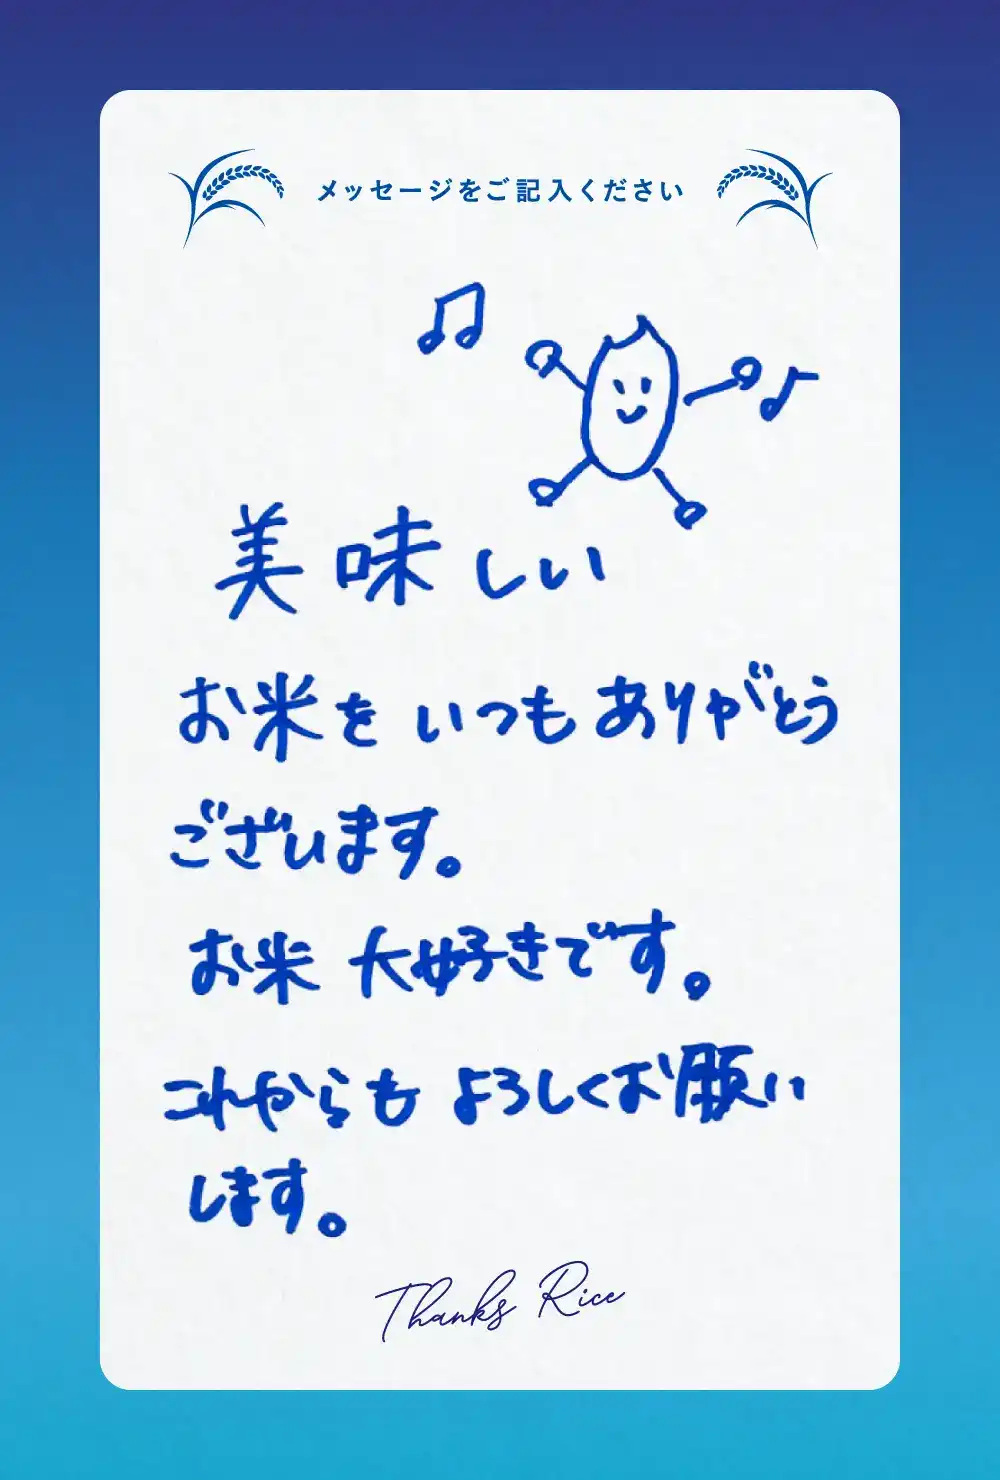 メッセージをご記入ください
美味しい
お米を いつも ありがとう
ございます。
お米 大好きです。
これからも よろしくお願い
します。
Thanks Rice